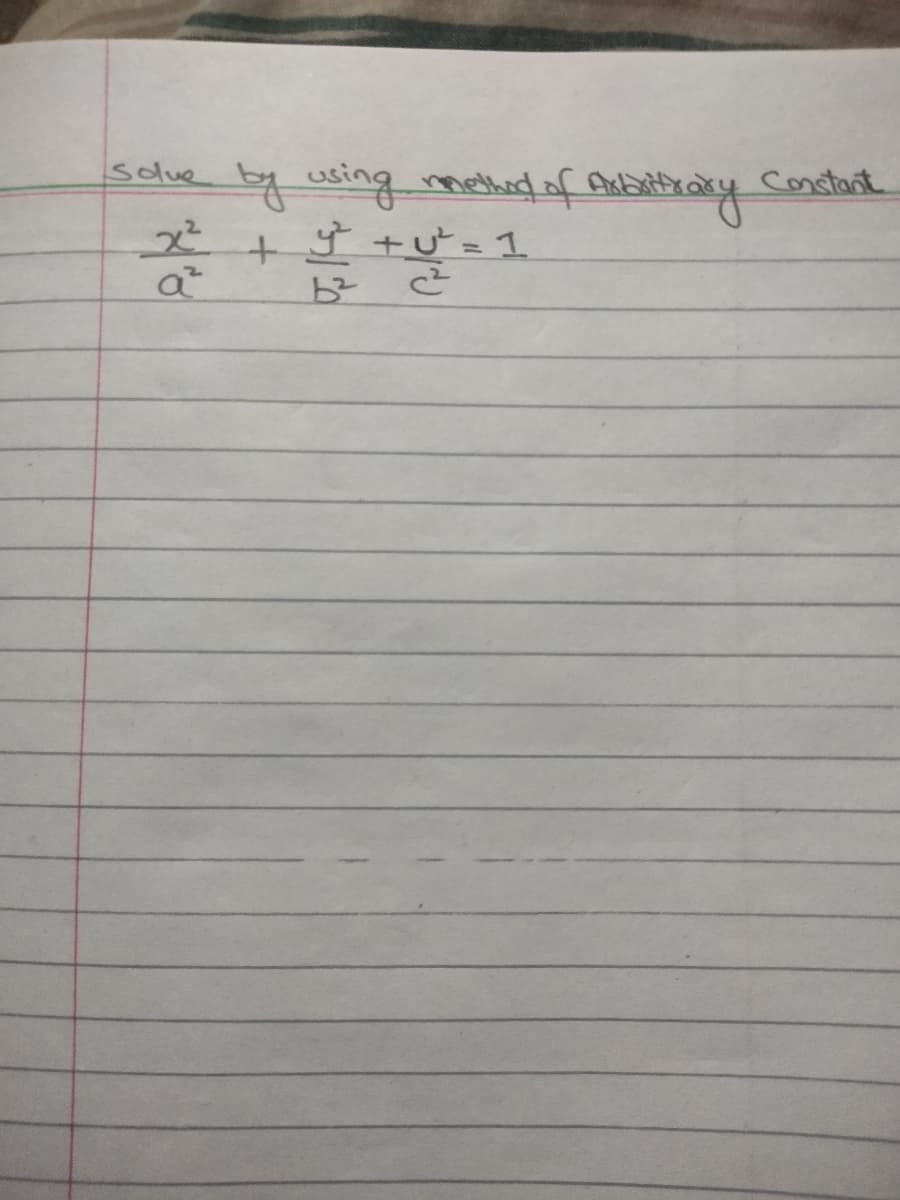 solve by using method of Arbitrary Constant
x²/a² + y²/b² + u²/c² = 1